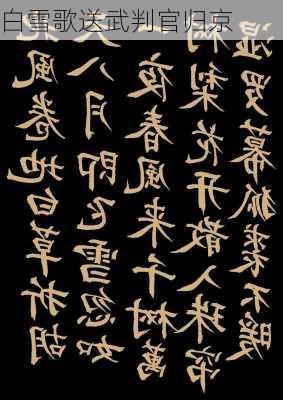 白雪歌送武判官归京
北風卷地白草折胡
天八月即飞雪忽如
夜春風来千树萬
树梨花开散入珠帘
湿罗幕狐裘不暖